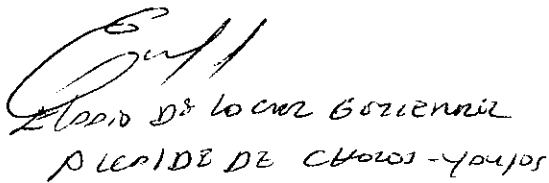 Eladio De La Cruz Gutierrez
ALCALDE DE CHOCOS - YAUYOS